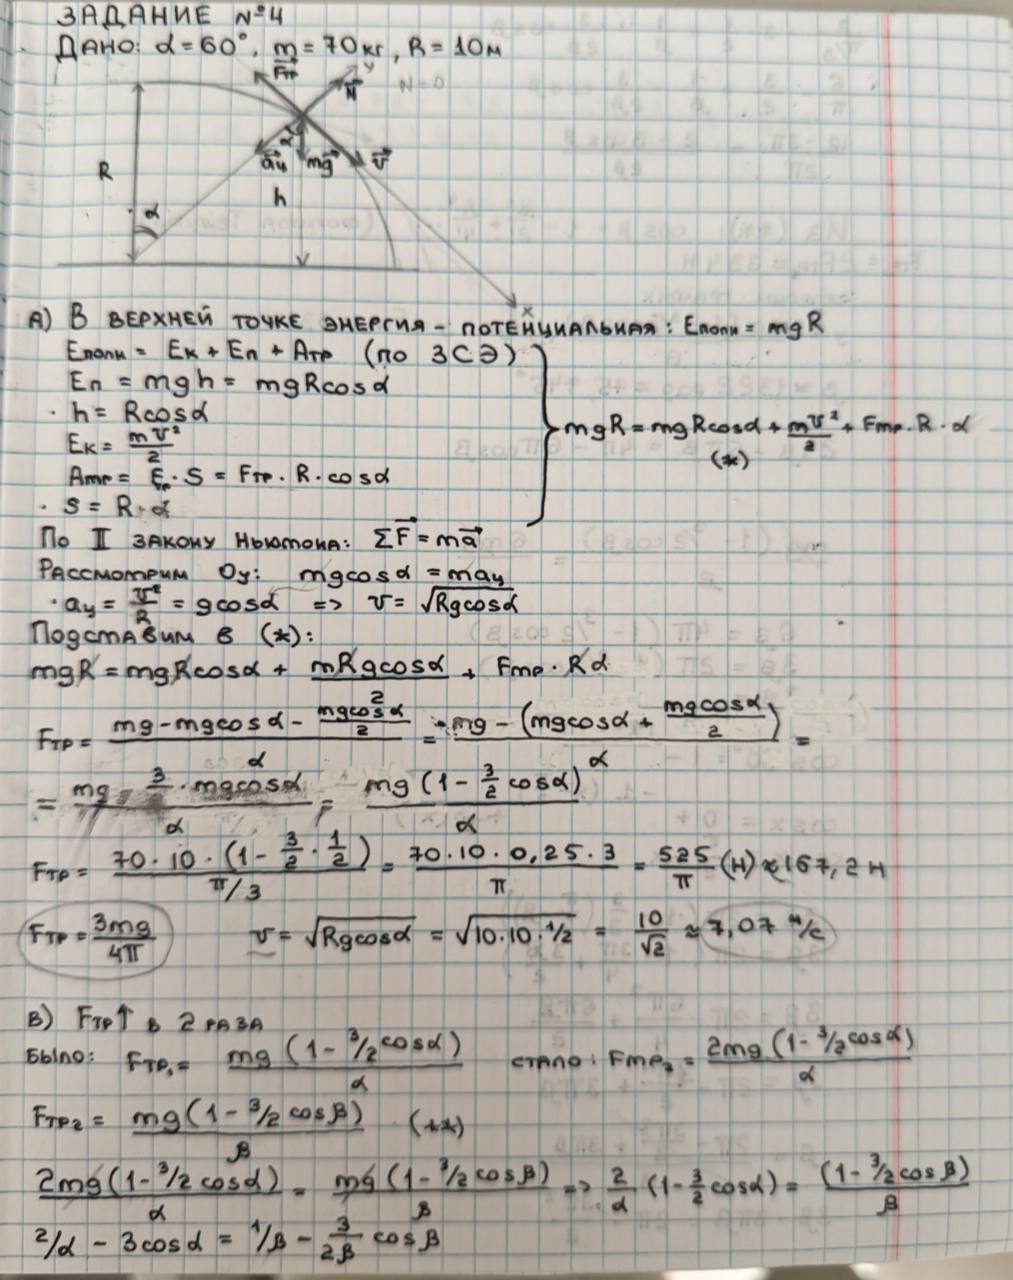 ЗАДАНИЕ №4
ДАНО: α = 60°, m = 70кг, R = 10м
Fтр
y
N
N = 0
α
aц
mg
v
R
h
α
x
А) В ВЕРХНЕЙ ТОЧКЕ ЭНЕРГИЯ - ПОТЕНЦИАЛЬНАЯ: Eполн = mgR
Eполн = Eк + Eп + Aтр (по ЗСЭ)
Eп = mgh = mgRcosα
· h = Rcosα
Eк = mv²/2
mgR = mgRcosα + mv²/2 + Fтр·R·α
(*)
Aтр = Fтр·S = Fтр·R·cosα
· S = R·α
По II ЗАКОНУ НЬЮТОНА: ΣF = ma
РАССМОТРИМ Oy: mgcosα = maц
· aц = v²/R = gcosα => v = √Rgcosα
Подставим в (*):
mgR = mgRcosα + mRgcosα/2 + Fтр·Rα
Fтр = (mg - mgcosα - mgcosα/2)/α = (mg - (mgcosα + mgcosα/2))/α =
= (mg - 3/2 · mgcosα)/α = mg(1 - 3/2 cosα)/α
Fтр = 70·10·(1 - 3/2 · 1/2)/(π/3) = 70·10·0,25·3/π = 525/π (Н) ≈ 167,2 Н
Fтр = 3mg/4π v = √Rgcosα = √10·10·1/2 = 10/√2 ≈ 7,07 м/с
В) Fтр↑ в 2 РАЗА
БЫЛО: Fтр₁ = mg(1 - 3/2 cosα)/α СТАЛО: Fтр₂ = 2mg(1 - 3/2 cosα)/α
Fтр₂ = mg(1 - 3/2 cosβ)/β (**)
2mg(1 - 3/2 cosα)/α = mg(1 - 3/2 cosβ)/β => 2/α (1 - 3/2 cosα) = (1 - 3/2 cosβ)/β
2/α - 3cosα = 1/β - 3/2β cosβ